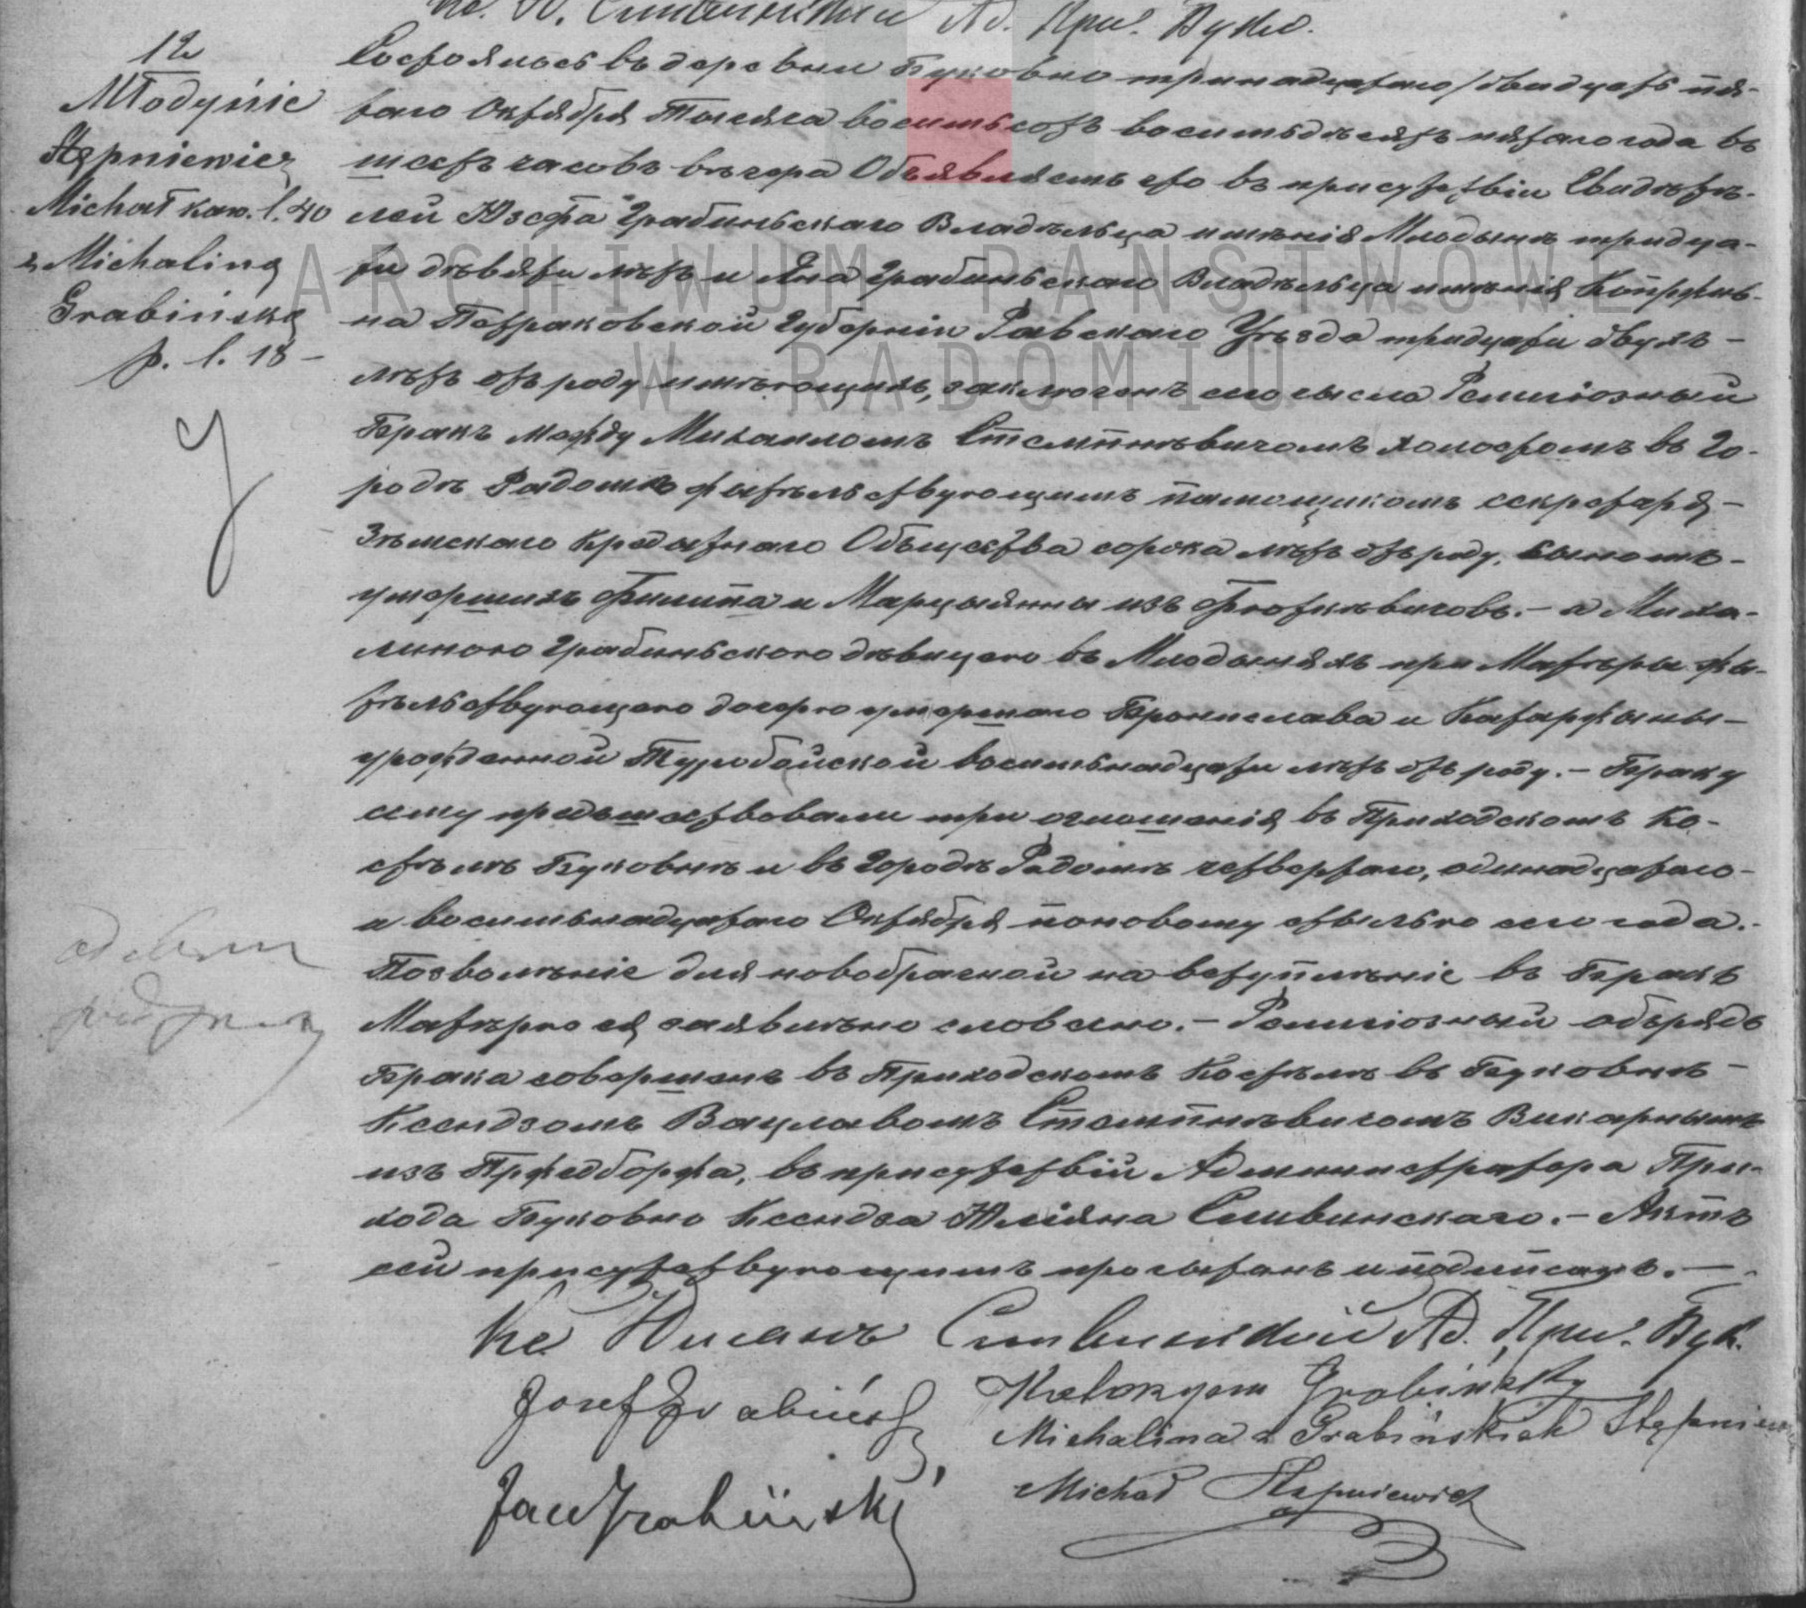 Кс. Ю. Сливинский Ад. Прих. Буко.
12
Młodynie
Stępniewicz
Michał kaw. l. 40
z Michaliną
Grabińską
p. l. 18 –
Состоялось въ деревни Буковно тринадцатаго /двадцать пя-
таго Октября Тысяча восемьсотъ восемьдесятъ пятаго года въ
шесть часовъ вечера Объявляемъ что въ присутствіи Свидѣтѣ-
лей Юзефа Грабинъскаго Владѣльца имѣнія Млодынѣ тридца-
ти дѣвяти лѣтъ и Яна Грабинъскаго Владѣльца имѣнія
на Петраковской Губерніи Равскаго Уѣзда тридцати двухъ –
лѣтъ отъ роду имѣющихъ, заключенъ сего числа Религіозный
Бракъ между Михаиломъ Стемпнѣвичомъ холостомъ въ Го-
родѣ Радомѣ жытѣльствующимъ памощикомъ секретаря –
Зѣмскаго Кредытнаго Общества сорока лѣтъ отъ роду, сыномъ –
умершихъ Филипа и Марцыянны изъ – а Миха-
линою Грабинъского дѣвицею въ Млодыняхъ при Матѣры жы-
тѣльствующего дочерю умершаго Бронислава и Катаржыны –
урожденной Туробойской восемьнадцати лѣтъ отъ роду. – Браку
сему предшествовали три оглошенія въ Приходскомъ Ко-
стѣлѣ Буковнѣ и въ Городѣ Радомѣ четвертаго, одинадцатаго –
и восемьнадцатаго Октября поновому стылью сего года. –
Позволѣніе для новобрачной на вступлѣніе въ Бракъ
Матѣрю ея заявлѣно словесно. – Религіозный обърядъ
Брака совершенъ въ Приходскомъ Костѣлѣ въ Буковнѣ –
Ксендзомъ Вацлавомъ Стемпнѣвичомъ Викарнымъ
изъ Пржедборжа, въ присутствій Администратора При-
хода Буковно Ксендза Юліяна Сливинскаго. – Актъ
сей присутствующимъ прочытанъ и подписанъ. –
Кс. Юлианъ Сливинский Ад. Прих. Бук.
Józef Grabiński
Katarzyna Grabińska
Michalina z Grabińskich Stępniewicz
Jan Grabiński
Michał Stępniewicz
ARCHIWUM PAŃSTWOWE
W RADOMIU